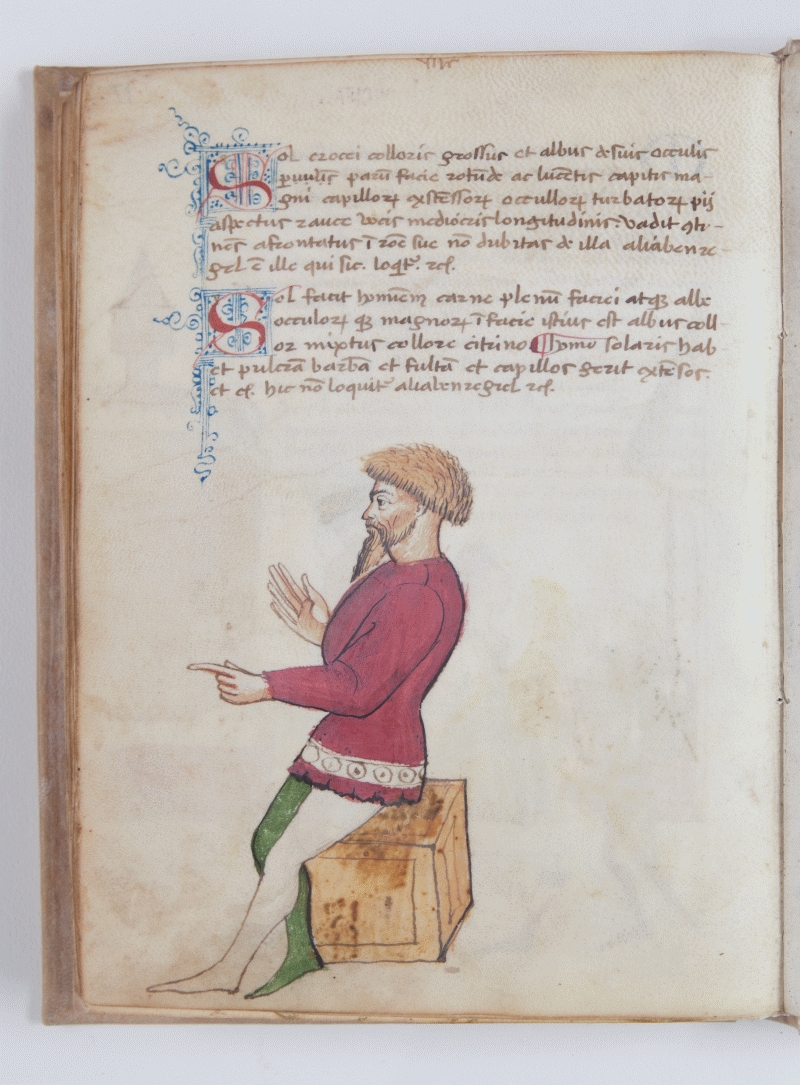 Sol crocei colloris grossus et albus desuis occulis
pauulis paru facie rotūde ac lucētis capitis ma-
gni capilloꝝ extēssoꝝ occulloꝝ turbatoꝝ pij
aspectus rauce vocis mediocris longitudinis. Vadit
nens afrontatus ī roē sue nō dubitas de illa aliabenre-
gel ē ille qui sic. loqt̄. rel.
Sol facit hominem carne plenū faciei atqꝫ albe
occuloꝝ qꝫ magnoꝝ ī facie istius est albus coll-
or mixtus collore citrino ¶ homo solaris hab
et pulcrā barbā et fultā et capillos gerit extēsos.
et cl. hic nō loquit̄ aliabenregel rel.